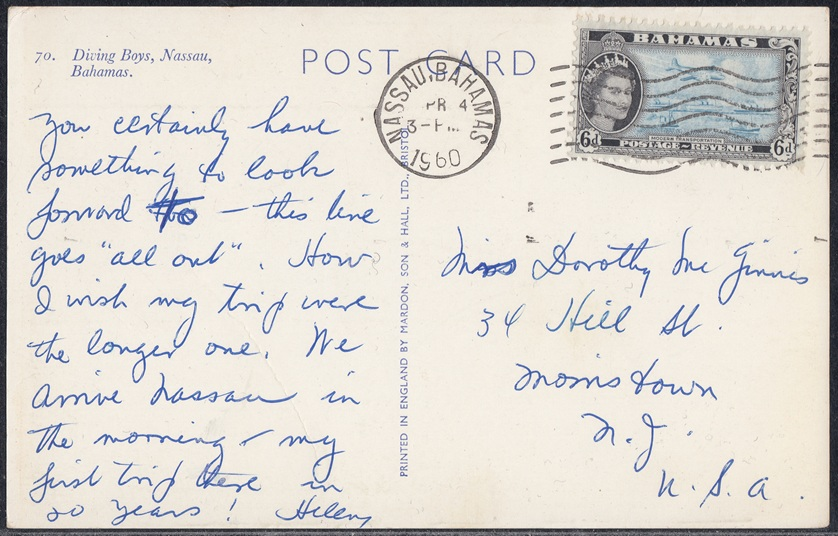 70. Diving Boys, Nassau,
Bahamas.
POST CARD
You certainly have
something to look
forward to — this line
goes "all out". How
I wish my trip were
the longer one. We
arrive Nassau in
the morning – my
first trip there in
20 years! Helen
PRINTED IN ENGLAND BY MARDON, SON & HALL, LTD., BRISTOL
NASSAU, BAHAMAS
PR 4
3-PM
1960
BAHAMAS
MODERN TRANSPORTATION
6d POSTAGE REVENUE 6d
Miss Dorothy Mc Ginnis
34 Hill St.
Morristown
N.J.
U.S.A.